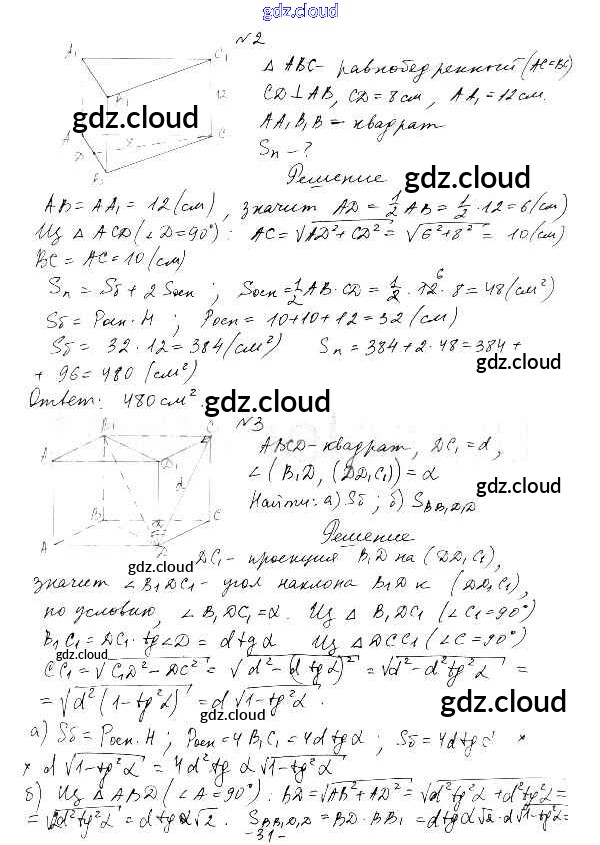 gdz.cloud
№2
△ ABC - равнобедренный (AC=BC)
CD⊥AB, CD=8см, AA₁=12см.
AA₁B₁B - квадрат
Sп - ?
Решение
AB=AA₁=12(см), значит AD=½AB=½·12=6(см)
Из △ACD(∠D=90°): AC=√AD²+CD²=√6²+8²=10(см)
BC=AC=10(см)
Sп=Sб+2Sосн; Sосн=½AB·CD=½·12·8=48(см²)
Sб=Pосн·H; Pосн=10+10+12=32(см)
Sб=32·12=384(см²) Sп=384+2·48=384+
+96=480(см²)
Ответ: 480см².
№3
ABCD-квадрат, DC₁=d,
∠(B₁D,(DD₁C₁))=α
Найти: а) Sб; б) S BB₁D₁D
Решение
DC₁-проекция B₁D на (DD₁C₁),
значит ∠B₁DC₁-угол наклона B₁D к (DD₁C₁),
по условию, ∠B₁DC₁=α. Из △B₁DC₁(∠C₁=90°)
B₁C₁=DC₁·tg∠D=dtgα Из △DCC₁(∠C=90°)
CC₁=√C₁D²-DC²=√d²-(dtgα)²=√d²-d²tg²α=
=√d²(1-tg²α)=d√1-tg²α.
а) Sб=Pосн·H; Pосн=4B₁C₁=4dtgα; Sб=4dtgα ×
× d√1-tg²α=4d²tgα√1-tg²α
б) Из △ABD(∠A=90°): BD=√AB²+AD²=√d²tg²α+d²tg²α=
=√2d²tg²α=dtgα√2. S BB₁D₁D=BD·BB₁=dtgα√2·d√1-tg²α=
-31-